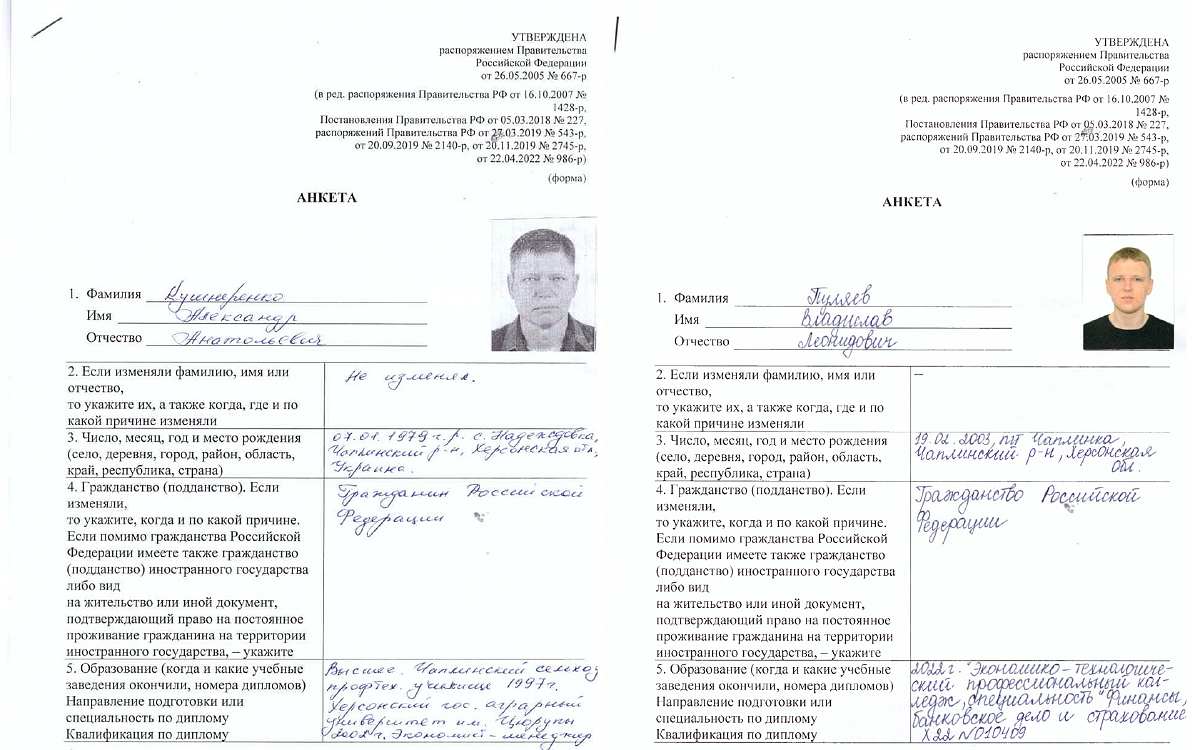 УТВЕРЖДЕНА
распоряжением Правительства
Российской Федерации
от 26.05.2005 № 667-р
(в ред. распоряжения Правительства РФ от 16.10.2007 №
1428-р,
Постановления Правительства РФ от 05.03.2018 № 227,
распоряжений Правительства РФ от 27.03.2019 № 543-р,
от 20.09.2019 № 2140-р, от 20.11.2019 № 2745-р,
от 22.04.2022 № 986-р)
(форма)
АНКЕТА
1. Фамилия Кушнеренко
Имя Александр
Отчество Анатольевич
2. Если изменяли фамилию, имя или
отчество,
то укажите их, а также когда, где и по
какой причине изменяли
Не изменял.
3. Число, месяц, год и место рождения
(село, деревня, город, район, область,
край, республика, страна)
07.01.1979 г.р. с. Надеждовка,
Чаплинский р-н, Херсонская обл,
Украина.
4. Гражданство (подданство). Если
изменяли,
то укажите, когда и по какой причине.
Если помимо гражданства Российской
Федерации имеете также гражданство
(подданство) иностранного государства
либо вид
на жительство или иной документ,
подтверждающий право на постоянное
проживание гражданина на территории
иностранного государства, – укажите
Гражданин Российской
Федерации
5. Образование (когда и какие учебные
заведения окончили, номера дипломов)
Направление подготовки или
специальность по диплому
Квалификация по диплому
Высшее. Чаплинский сельхоз
профтех. училище 1997г.
Херсонский гос. аграрный
университет им. Цюрупы
2002 г. Экономист-менеджер
УТВЕРЖДЕНА
распоряжением Правительства
Российской Федерации
от 26.05.2005 № 667-р
(в ред. распоряжения Правительства РФ от 16.10.2007 №
1428-р,
Постановления Правительства РФ от 05.03.2018 № 227,
распоряжений Правительства РФ от 27.03.2019 № 543-р,
от 20.09.2019 № 2140-р, от 20.11.2019 № 2745-р,
от 22.04.2022 № 986-р)
(форма)
АНКЕТА
1. Фамилия Пуляев
Имя Владислав
Отчество Леонидович
2. Если изменяли фамилию, имя или
отчество,
то укажите их, а также когда, где и по
какой причине изменяли
–
3. Число, месяц, год и место рождения
(село, деревня, город, район, область,
край, республика, страна)
19.02.2003, пгт Чаплинка,
Чаплинский р-н, Херсонская
обл.
4. Гражданство (подданство). Если
изменяли,
то укажите, когда и по какой причине.
Если помимо гражданства Российской
Федерации имеете также гражданство
(подданство) иностранного государства
либо вид
на жительство или иной документ,
подтверждающий право на постоянное
проживание гражданина на территории
иностранного государства, – укажите
Гражданство Российской
Федерации
5. Образование (когда и какие учебные
заведения окончили, номера дипломов)
Направление подготовки или
специальность по диплому
Квалификация по диплому
2022 г. "Экономико-технологиче-
ский профессиональный кол-
ледж, специальность "Финансы,
банковское дело и страхование
Х22 №010409